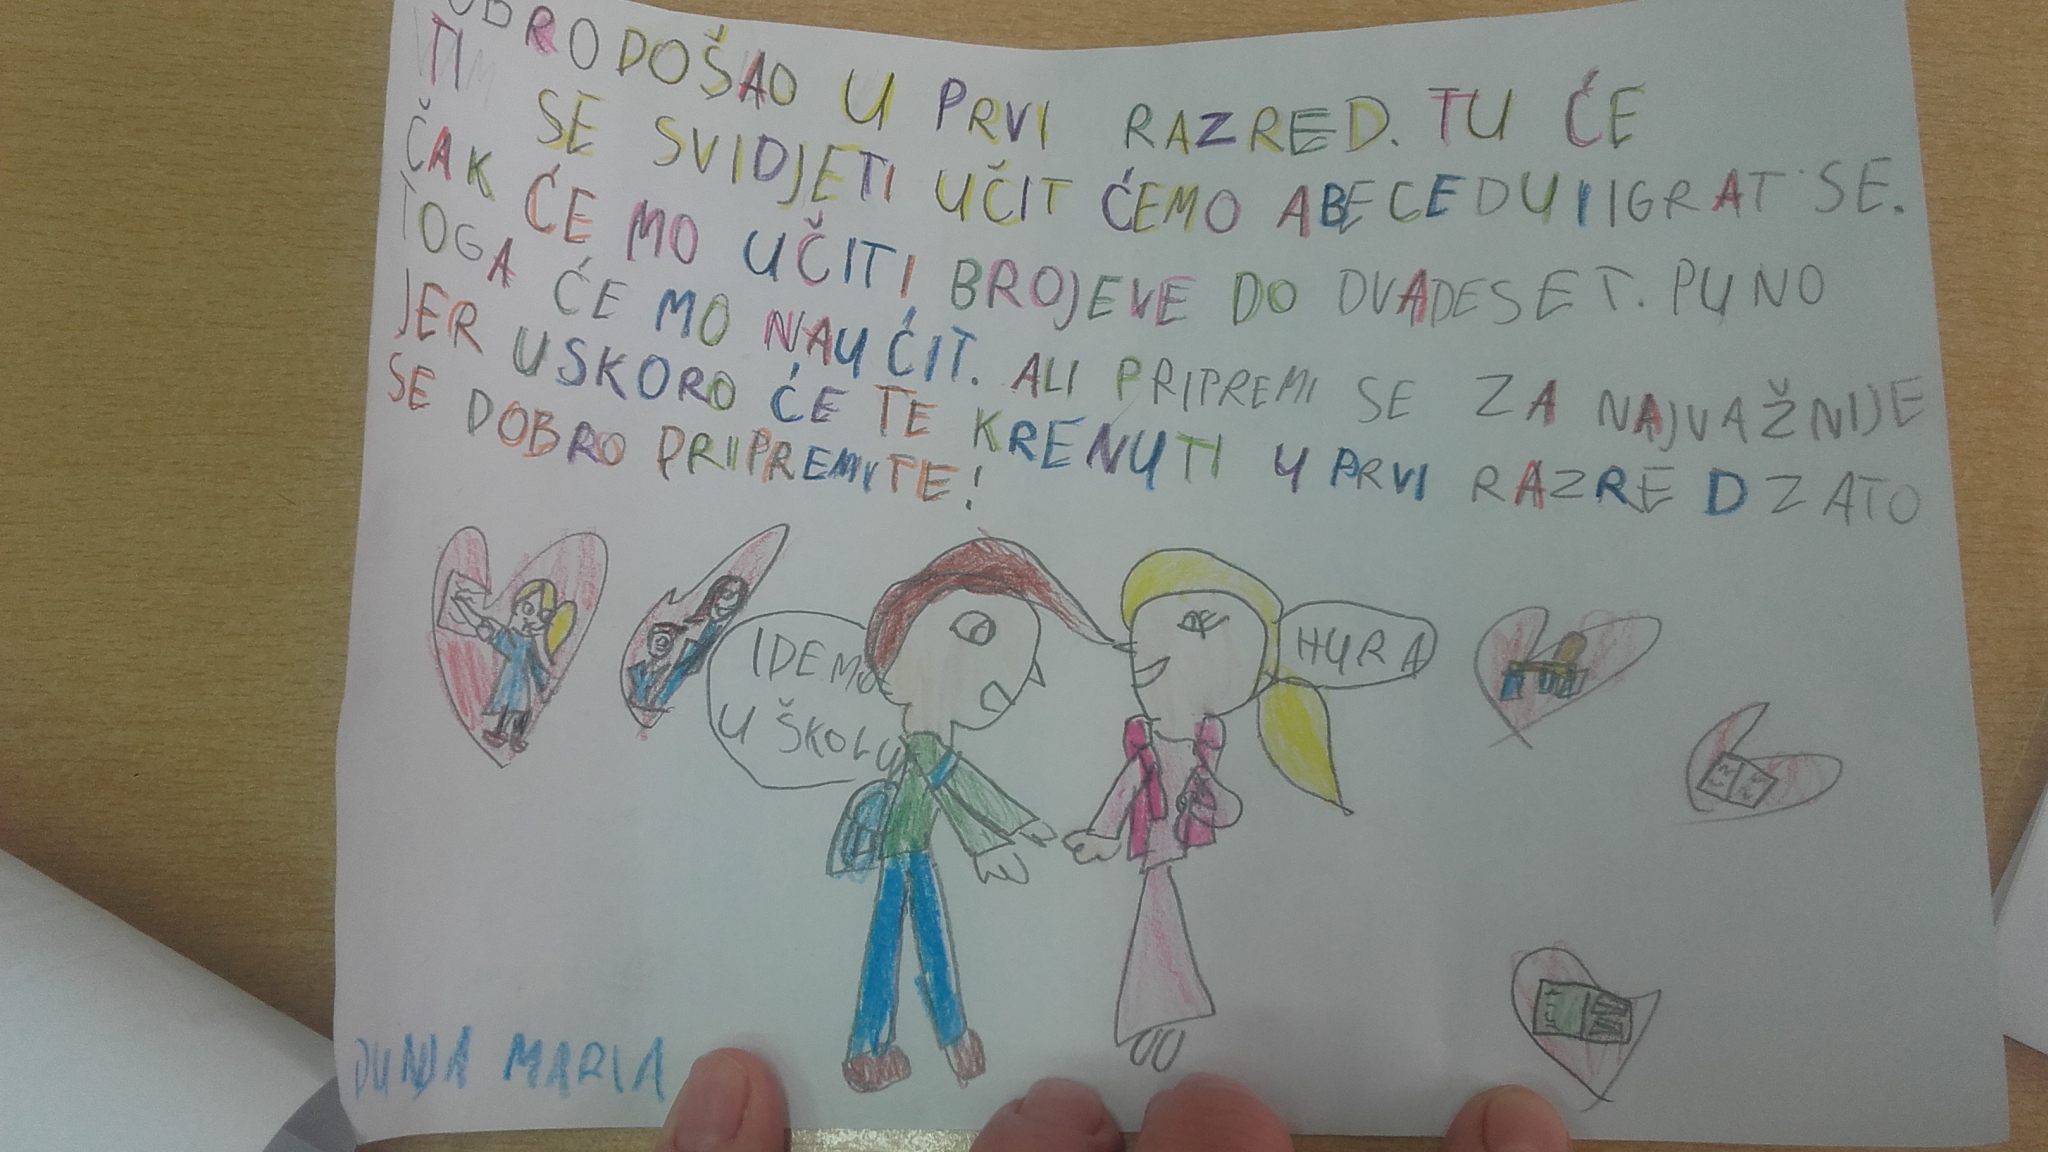 OBRO DOŠAO U PRVI RAZRED. TU ĆE
TI SE SVIDJETI UČIT ĆEMO ABECEDU I IGRAT SE.
ČAK ĆE MO UČITI BROJEVE DO DVADESET. PUNO
TOGA ĆE MO NAUČIT. ALI PRIPREMI SE ZA NAJVAŽNIJE
JER USKORO ĆE TE KRENUTI U PRVI RAZRED ZATO
SE DOBRO PRIIPREMITE!
IDEMO
U ŠKOLU
HURA
DUNJA MARIA